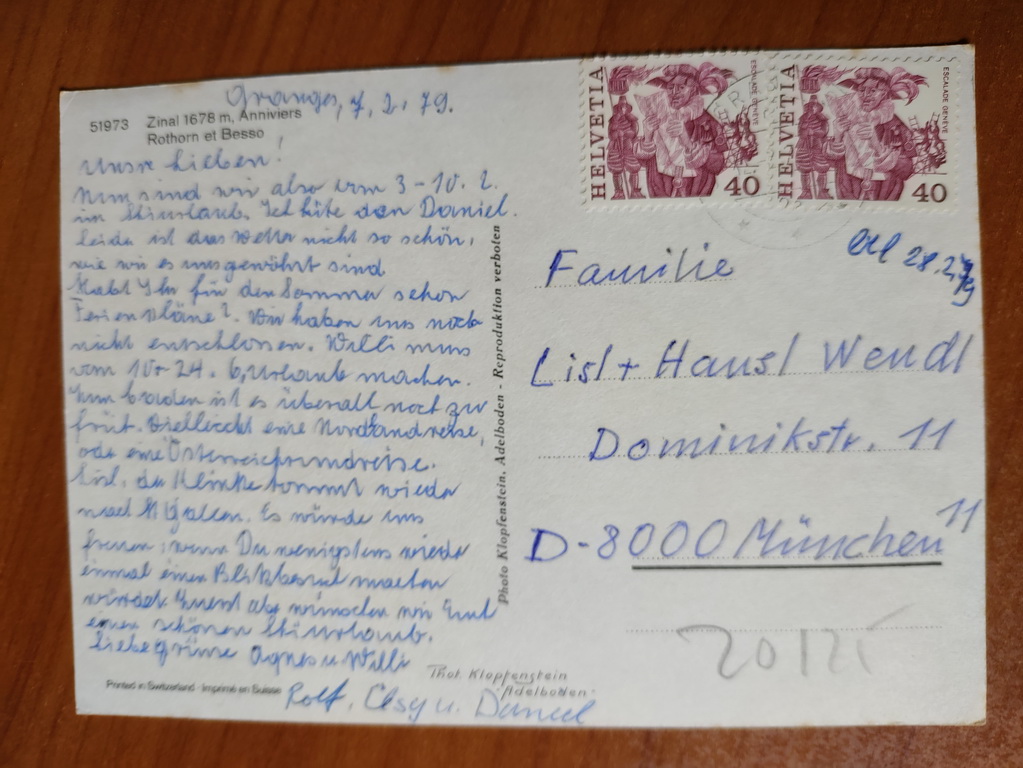 Granges, 7. 2. 79.
51973 Zinal 1678 m, Anniviers
Rothorn et Besso
Unsre Lieben!
Nun sind wir also vom 3-10. 2.
im Skiurlaub. Ich hüte den Daniel.
leider ist das Wetter nicht so schön,
wie wir es uns gewöhnt sind.
Habt Ihr für den Sommer schon
Ferienpläne? Wir haben uns noch
nicht entschlossen. Willi muss
vom 10-24. 6. Urlaub machen.
Zum baden ist es überall noch zu
früh. Vielleicht eine Nordlandreise,
oder eine Österreichrundreise.
Lisl, der kommt wieder
nach St Gallen. Es würde uns
freuen, wenn Du wenigstens wieder
einmal einen Blitzbesuch machen
würdest. Zuerst aber wünschen wir Euch
einen schönen Skiurlaub.
Liebe Grüsse Agnes u Willi
Rolf, Elsy u. Daniel
Printed in Switzerland · Imprimé en Suisse
Phot. Klopfenstein
Adelboden
Photo Klopfenstein, Adelboden - Reproduktion verboten
HELVETIA 40 ESCALADE GENÈVE
HELVETIA 40 ESCALADE GENÈVE
28.2.79
Familie
Lisl + Hansl Wendl
Dominikstr. 11
D-8000 München 11